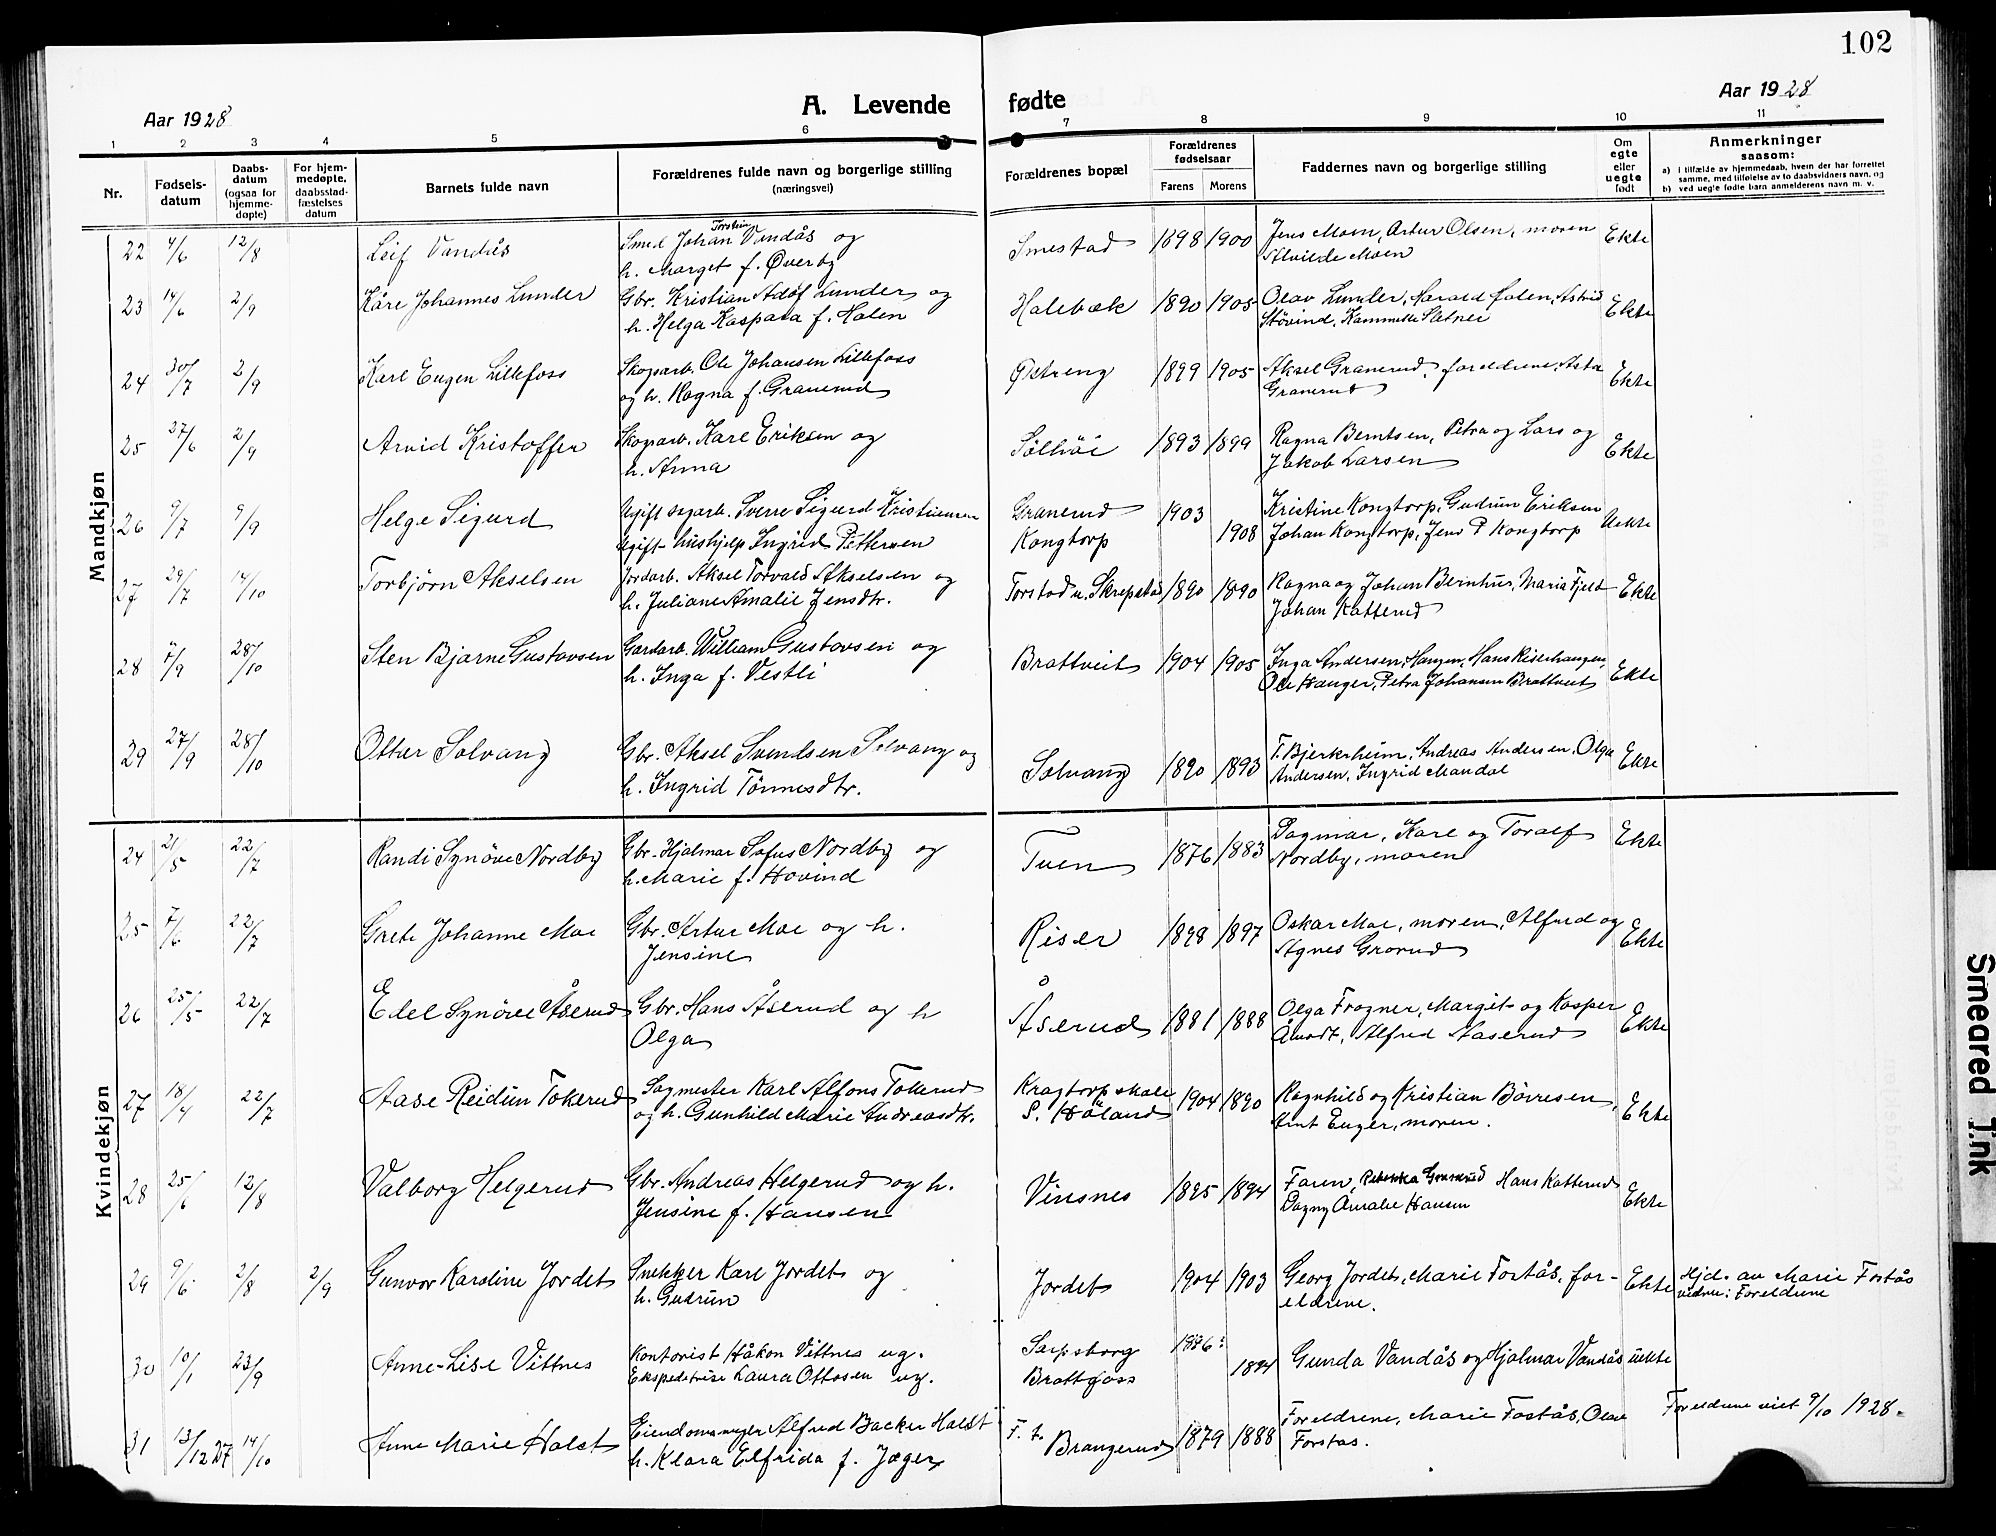 102
Aar 1928
A. Levende fødte
Aar 1928
1 2 3 4 5 6 7 8 9 10 11
Nr.
Fødsels-
datum
Daabs-
datum
(ogsaa for
hjemme-
døpte)
For hjem-
medøpte,
daabsstad-
fæstelses
datum
Barnets fulde navn
Forældrenes fulde navn og borgerlige stilling
(næringsvei)
Forældrenes bopæl
Forældrenes
fødselsaar
Farens Morens
Faddernes navn og borgerlige stilling
Om
egte
eller
uegte
født
Anmerkninger
saasom:
a) i tilfælde av hjemmedaab, hvem der har forrettet
samme, med tilføielse av to daabsvidners navn, og
b) ved uegte fødte barn anmelderens navn m. v.
Mandkjøn
22 4/6 12/8 Leif Vandås Smed Johan Torstein Vandås og Smestad 1898 1900 Jens Moen, Artur Olsen, moren Ekte
h. Marget f. Øverby Alvilde Moen
23 14/6 2/9 Kåre Johannes Lunder Gbr. Kristian Adolf Lunder og Halebæk 1890 1905 Olav Lunder, Harald Holen, Astrid Ekte
h. Helga Kaspara f. Holen Støvind, Kammille
24 30/7 2/9 Karl Eugen Lillefoss Skogarb. Ole Johansen Lillefoss 1899 1905 Aksel Granerud, foreldrene, Asta Ekte
og h. Magna f. Granerud Granerud
25 27/6 2/9 Arvid Kristoffer Skogarb. Karl Eriksen og 1893 1899 Ragna Berntsen, Petra og Lars og Ekte
h. Anna Jakob Larsen
26 9/7 9/9 Helge Sigurd Ugift sagarb. Sverre Sigurd Kristiansen Granerud 1903 Kristine Kongtorp, Gudrun Eriksen Uekte
Ugift hushjelp Ingrid Pettersen Kongtorp 1908 Johan Kongtorp, Jens P Kongtorp
27 29/7 14/10 Torbjørn Akselsen Jordarb. Aksel Torvald Akselsen og Torstad u. Skrepstad 1890 1890 Ragna og Johan Bernhus, Maria Fjeld Ekte
h. Juliane Amalie Jensdtr. Johan Katterud
28 7/9 28/10 Sten Bjarne Gustavsen Gardarb. William Gustavsen og Brattveit 1904 1905 Inga Andersen, Haugen, Hans Riserhaugen, Ekte
h. Inga f. Vestli Ole Hauger, Petra Johansen Brattveit
29 27/9 28/10 Ottar Solvang Gbr. Aksel Svendsen Solvang og Solvang 1890 1893 T. Bjerkrheim, Andreas Andersen, Olga Ekte
h. Ingrid Tønnesdtr. Andersen, Ingrid Mandal
Kvindekjøn
24 21/5 22/7 Randi Synøve Nordby Gbr. Hjalmar Sofus Nordby og Tuen 1876 1883 Dagmar, Karl og Toralf Ekte
h. Marie f. Hovind Nordby, moren
25 7/6 22/7 Grete Johanne Moe Gbr. Artur Moe og h. Riser 1898 1897 Oskar Moe, moren, Alfred og Ekte
Jensine Agnes Grorud
26 25/5 22/7 Edel Synøve Åserud Gbr. Hans Åserud og h Åserud 1881 1888 Olga Frogner, Margit og Kasper Ekte
Olga Åmodt, Alfred Aaserud
27 18/4 22/7 Aase Reidun Tokerud Sagmester Karl Alfons Tokerud Kragtorp skole 1904 1890 Ragnhild og Kristian Børresen, Ekte
og h. Gunhild Marie Andreasdtr. S. Høland Arnt Enger, moren.
28 25/6 12/8 Valborg Helgerud Gbr. Andreas Helgerud og h. Vinsnes 1895 1894 Faren, Hans Katterud Ekte
Jensine f. Hansen Dagny Amalie Hansen
29 9/6 2/8 2/9 Gunvor Karoline Jordet Snekker Karl Jordet og Jordet 1904 1903 Georg Jordet, Marie Fostås, for- Ekte Hjd. av Marie Fostås
h. Gudrun eldrene. vidner: Foreldrene
30 10/1 23/9 Anne-Lise Vittnes Kontorist Håkon Vittnes ug. Sarpsborg 1896? Gunda Vandås og Hjalmar Vandås uekte
Ekspeditrise Laura Ottosen ug. Brattfoss 1894
31 13/12 27 14/10 Anne Marie Holst Eiendomsmegler Alfred Backer Holst F. t. Brangerud 1879 1888 Foreldrene, Marie Fostås, Olav Foreldrene viet 9/10 1928.
h. Klara Elfrida f. Jæger Forstås.
Smeared Ink